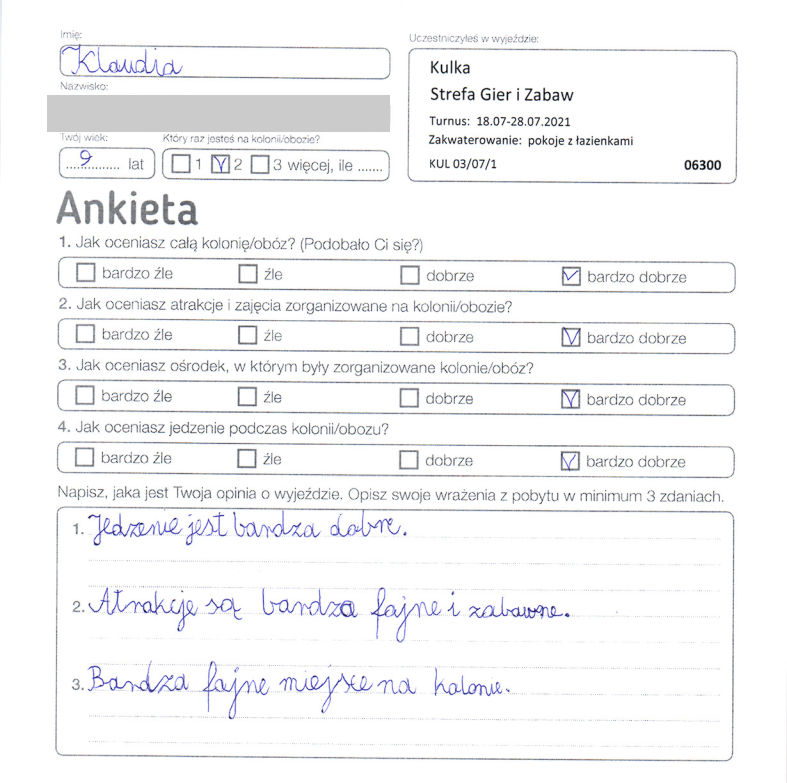 Imię:
Klaudia
Uczestniczyłeś w wyjeździe:
Kulka
Strefa Gier i Zabaw
Turnus: 18.07-28.07.2021
Zakwaterowanie: pokoje z łazienkami
KUL 03/07/1 06300
Nazwisko:
Twój wiek:
9 lat
Który raz jesteś na kolonii/obozie?
1 2 3 więcej, ile .......
Ankieta
1. Jak oceniasz całą kolonię/obóz? (Podobało Ci się?)
bardzo źle źle dobrze bardzo dobrze
2. Jak oceniasz atrakcje i zajęcia zorganizowane na kolonii/obozie?
bardzo źle źle dobrze bardzo dobrze
3. Jak oceniasz ośrodek, w którym były zorganizowane kolonie/obóz?
bardzo źle źle dobrze bardzo dobrze
4. Jak oceniasz jedzenie podczas kolonii/obozu?
bardzo źle źle dobrze bardzo dobrze
Napisz, jaka jest Twoja opinia o wyjeździe. Opisz swoje wrażenia z pobytu w minimum 3 zdaniach.
1. Jedzenie jest bardzo dobre.
2. Atrakcje są bardzo fajne i zabawne.
3. Bardzo fajne miejsce na kolonie.